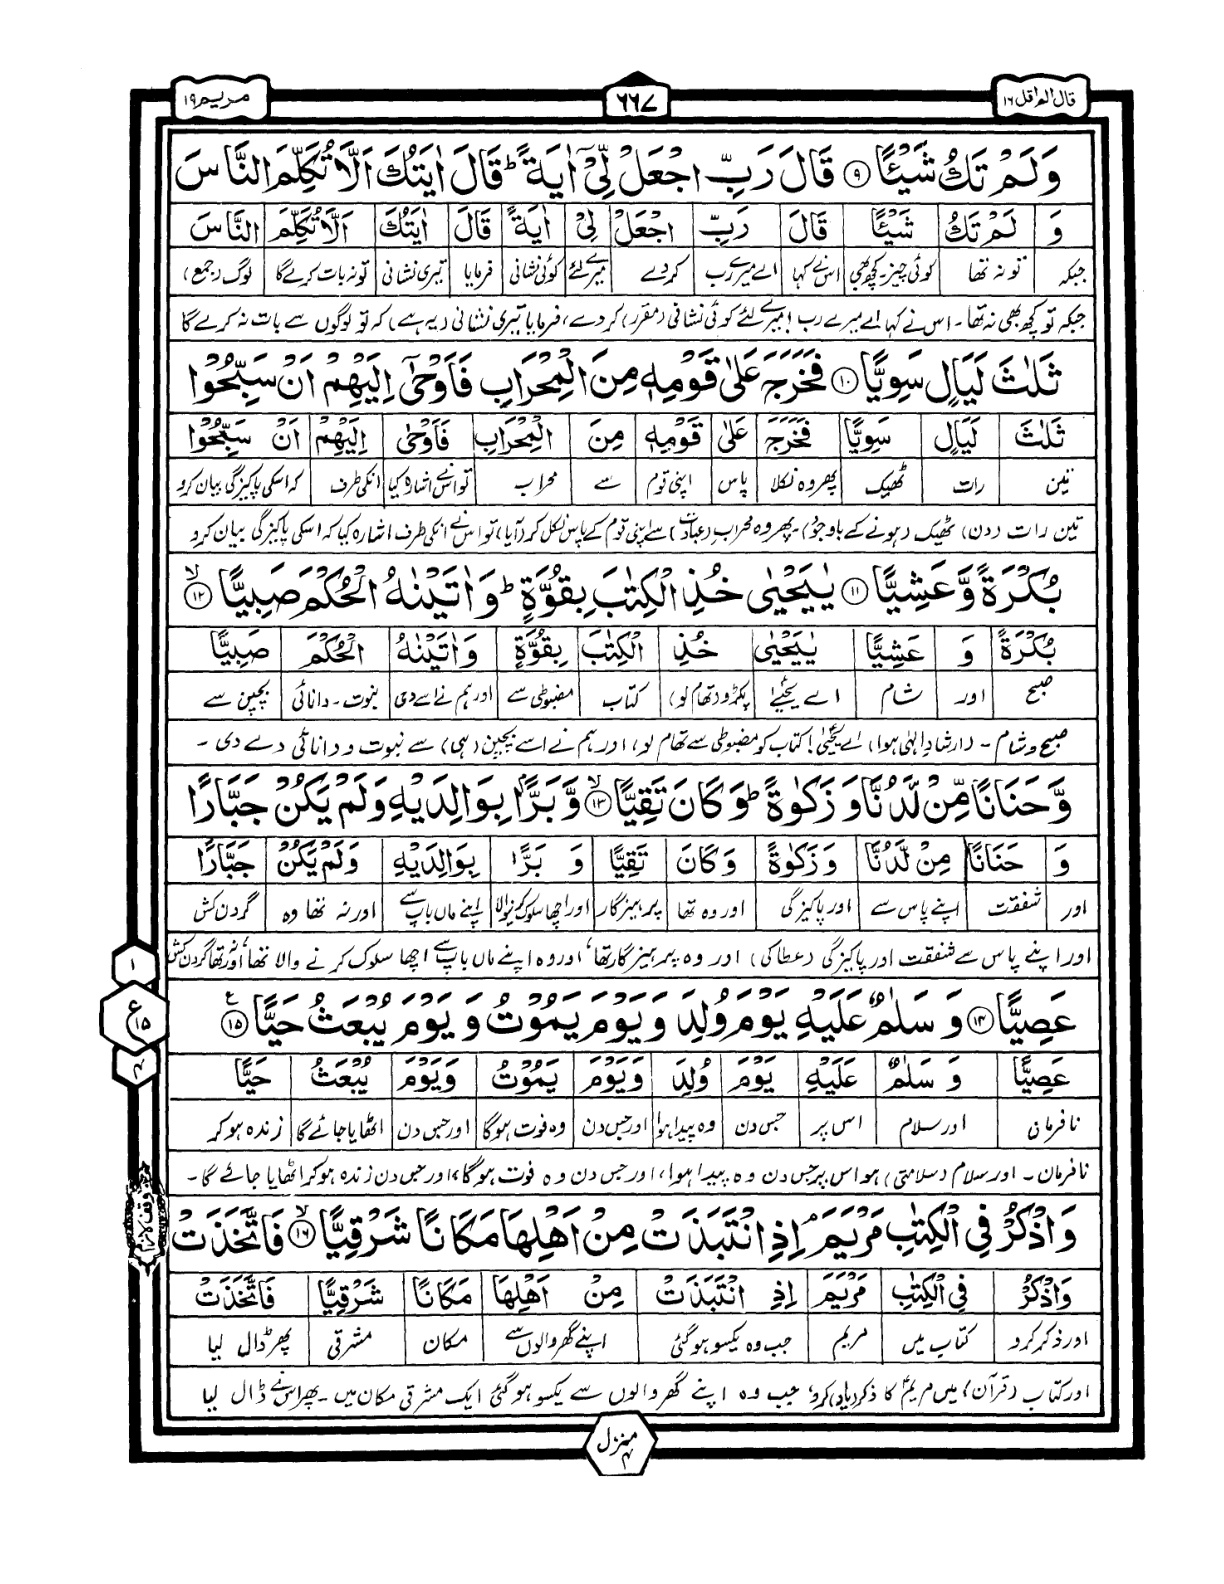 قال الم اقل ۱۶
۶۶۷
مریم ۱۹
وَلَمْ تَكُ شَيْئًا ۹ قَالَ رَبِّ اجْعَلْ لِّيْٓ اٰيَةً ؕ قَالَ اٰيَتُكَ اَلَّا تُكَلِّمَ النَّاسَ
وَ لَمْ تَكُ شَيْئًا قَالَ رَبِّ اجْعَلْ لِيْ اٰيَةً قَالَ اٰيَتُكَ اَلَّا تُكَلِّمَ النَّاسَ
جبکہ تو نہ تھا کوئی چیز۔ کچھ بھی اس نے کہا اے میرے رب کردے میرے لئے کوئی نشانی فرمایا تیری نشانی تو نہ بات کرے گا لوگ (جمع)
جبکہ تو کچھ بھی نہ تھا۔ اس نے کہا اے میرے رب! میرے لئے کوئی نشانی (مقرر) کر دے، فرمایا تیری نشانی (یہ ہے) کہ تو لوگوں سے بات نہ کرے گا
ثَلٰثَ لَيَالٍ سَوِيًّا ۱۰ فَخَرَجَ عَلٰى قَوْمِهٖ مِنَ الْمِحْرَابِ فَاَوْحٰٓى اِلَيْهِمْ اَنْ سَبِّحُوْا
ثَلٰثَ لَيَالٍ سَوِيًّا فَخَرَجَ عَلٰى قَوْمِهٖ مِنَ الْمِحْرَابِ فَاَوْحٰى اِلَيْهِمْ اَنْ سَبِّحُوْا
تین رات ٹھیک پھر وہ نکلا پاس اپنی قوم سے محراب تو اس نے اشارہ کیا انکی طرف کہ اسکی پاکیزگی بیان کرو
تین رات (دن) ٹھیک (ہونے کے باوجود)۔ پھر وہ محراب (عبادت) سے اپنی قوم کے پاس نکل کر (آیا) تو اس نے انکی طرف اشارہ کیا کہ اسکی پاکیزگی بیان کرو
بُكْرَةً وَّعَشِيًّا ۱۱ يٰيَحْيٰى خُذِ الْكِتٰبَ بِقُوَّةٍ ؕ وَاٰتَيْنٰهُ الْحُكْمَ صَبِيًّا ۱۲ ۙ
بُكْرَةً وَ عَشِيًّا يٰيَحْيٰى خُذِ الْكِتٰبَ بِقُوَّةٍ وَاٰتَيْنٰهُ الْحُكْمَ صَبِيًّا
صبح اور شام اے یحییٰ پکڑو (تھام لو) کتاب مضبوطی سے اور ہم نے اسے دی نبوت۔ دانائی بچپن سے
صبح و شام۔ (ارشاد الٰہی ہوا) اے یحییٰ! کتاب کو مضبوطی سے تھام لو، اور ہم نے اسے بچپن (ہی) سے نبوت و دانائی دے دی۔
وَّحَنَانًا مِّنْ لَّدُنَّا وَزَكٰوةً ؕ وَكَانَ تَقِيًّا ۱۳ ۙ وَّبَرًّۢا بِوَالِدَيْهِ وَلَمْ يَكُنْ جَبَّارًا
وَ حَنَانًا مِنْ لَّدُنَّا وَزَكٰوةً وَكَانَ تَقِيًّا وَ بَرًّا بِوَالِدَيْهِ وَلَمْ يَكُنْ جَبَّارًا
اور شفقت اپنے پاس سے اور پاکیزگی اور وہ تھا پرہیزگار اور اچھا سلوک کرنیوالا اپنے ماں باپ سے اور نہ تھا وہ گردن کش
اور اپنے پاس سے شفقت اور پاکیزگی (عطا کی) اور وہ پرہیزگار تھا، اور وہ اپنے ماں باپ سے اچھا سلوک کرنے والا تھا، اور نہ تھا گردن کش
عَصِيًّا ۱۴ وَسَلٰمٌ عَلَيْهِ يَوْمَ وُلِدَ وَيَوْمَ يَمُوْتُ وَيَوْمَ يُبْعَثُ حَيًّا ۱۵ ع
عَصِيًّا وَسَلٰمٌ عَلَيْهِ يَوْمَ وُلِدَ وَيَوْمَ يَمُوْتُ وَيَوْمَ يُبْعَثُ حَيًّا
نافرمان اور سلام اس پر جس دن وہ پیدا ہوا اور جس دن وہ فوت ہوگا اور جس دن اٹھایا جائے گا زندہ ہوکر
نافرمان۔ اور سلام (سلامتی) ہو اس پر جس دن وہ پیدا ہوا، اور جس دن وہ فوت ہوگا، اور جس دن زندہ ہوکر اٹھایا جائے گا۔
وَاذْكُرْ فِي الْكِتٰبِ مَرْيَمَ ۘ اِذِ انْتَبَذَتْ مِنْ اَهْلِهَا مَكَانًا شَرْقِيًّا ۱۶ ۙ فَاتَّخَذَتْ
وَاذْكُرْ فِي الْكِتٰبِ مَرْيَمَ اِذِ انْتَبَذَتْ مِنْ اَهْلِهَا مَكَانًا شَرْقِيًّا فَاتَّخَذَتْ
اور ذکر کرو کتاب میں مریم جب وہ یکسو ہوگئی اپنے گھر والوں سے مکان مشرقی پھر ڈال لیا
اور کتاب (قرآن) میں مریمؑ کا ذکر (یاد) کرو، جب وہ اپنے گھر والوں سے یکسو ہوگئی ایک مشرقی مکان میں۔ پھر اس نے ڈال لیا
۱
ع ۱۵
۴
وقف لازم
منزل ۴